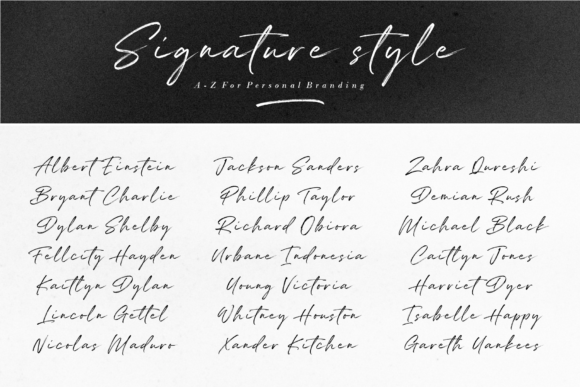 Signature style
A-Z For Personal Branding
Albert Einstein
Bryant Charlie
Dylan Shelby
Fellcity Hayden
Kaitlyn Dylan
Lincoln Gettel
Nicolas Maduro
Jackson Sanders
Phillip Taylor
Richard Obiora
Urbane Indonesia
Young Victoria
Whitney Houston
Xander Kitchen
Zahra Qureshi
Demian Rush
Michael Black
Caitlyn Jones
Harriet Dyer
Isabelle Happy
Gareth Yankees